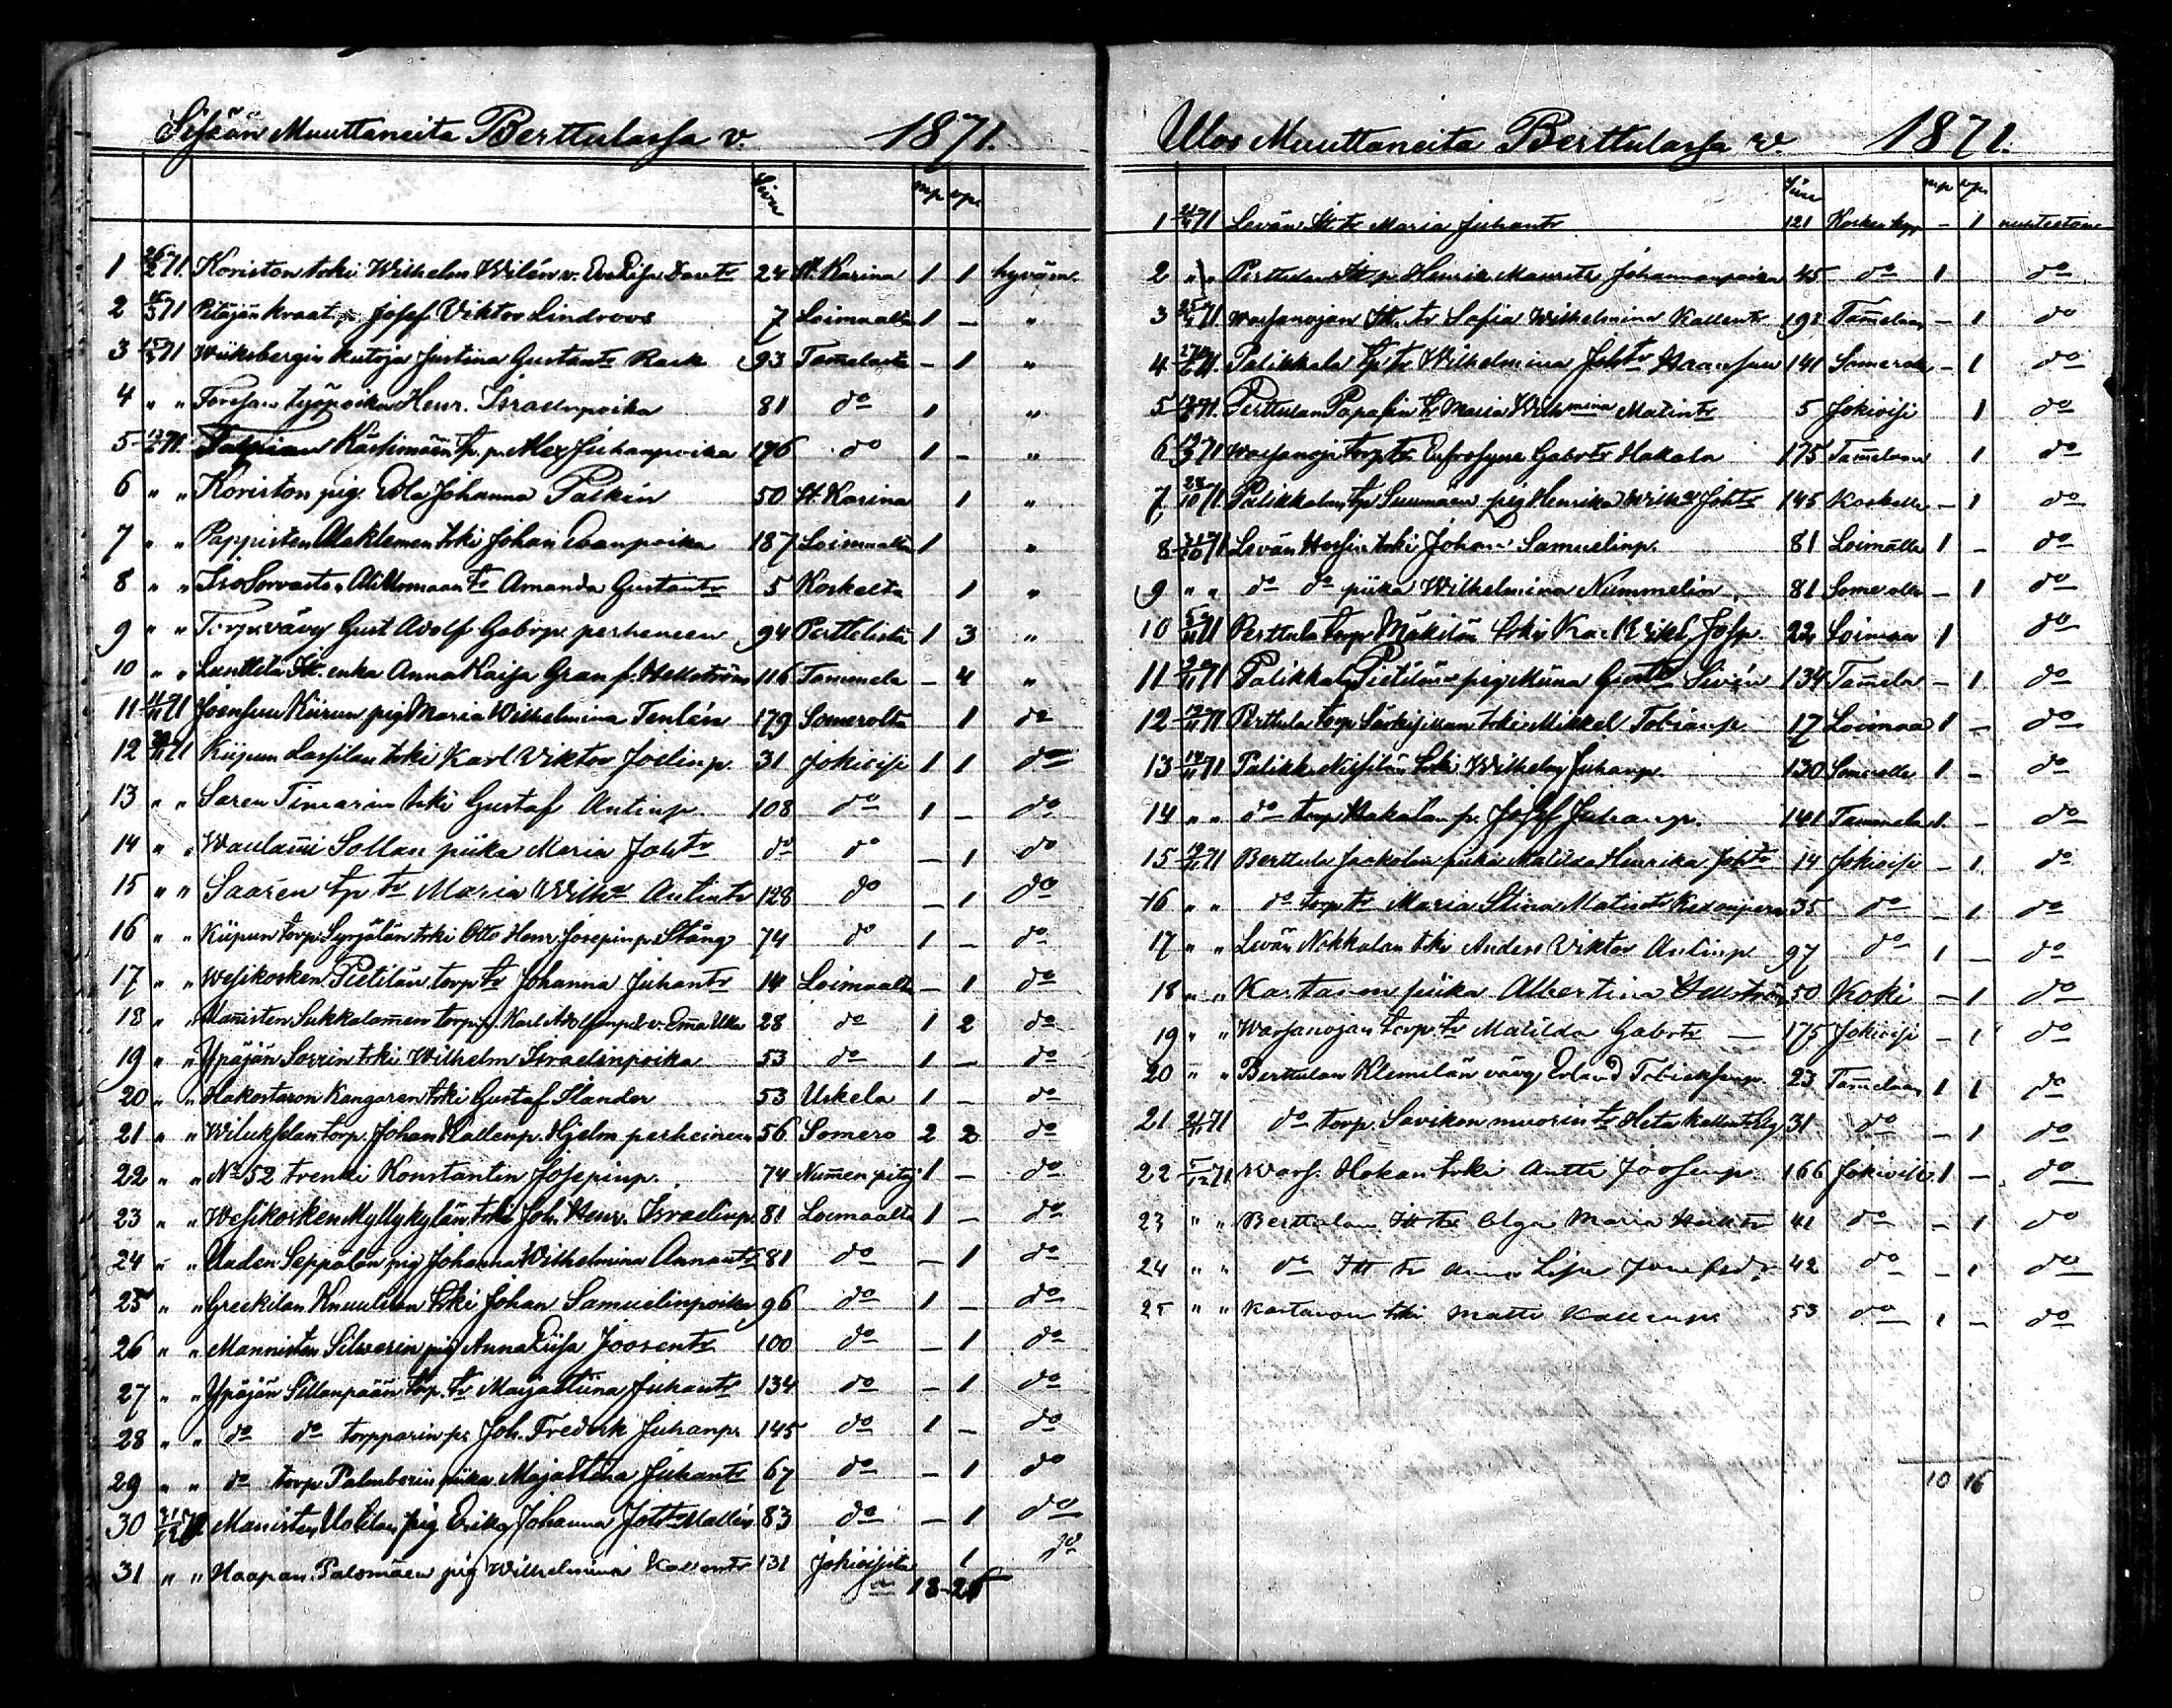 Sisään Muuttaneita Berttulassa v. 1871.
Sivu mp vp.
1 26/2 71. Koriston trki Wilhelm Wilén v. Eva Lisa Davtr 24 St. Karina 1 1 hyväm.
2 15/3 71 Pitäjän kraat. Josef Viktor Lindroos 7 Loimaalta 1 – "
3 71 Wiiksbergin kutoja Justina Gustantr Rask 93 Tam̃elasta – 1 "
4 " " Forssan työpoika Henr. Israelinpoika 81 do 1 "
5 71. Kästimäen tp. p. Alex Juhanpoika 196 do 1 – "
6 " " Koriston pig. Eva Johanna Palkin 50 St. Karina 1 "
7 " " Pappisten Alaklemen trki Johan Evanpoika 187 Loimaalta 1 "
8 " " Iso Sorvasto Alitlomaan tr Amanda Gustantr 5 Koskelta 1 "
9 " " Torp. vävy Gust Adolf Gabrp. perheineen 94 Perttelistä 1 3 "
10 " " Lunttila Itt. enka Anna Kaisa Gran f. Hellström 116 Tammela – 4 "
11 71 Joensuun Kiirun pig Maria Wilhelmina Tenlén 179 Somerolta 1 do
12 71 Kiipun Lassilan trki Karl Viktor Joelinp. 31 Jokioisi 1 1 do
13 " " Saren Timarin trki Gustaf Antinp. 108 do 1 – do
14 " " Waulam̃i Sollan piika Maria Johtr do do – 1 do
15 " " Saaren tp tr Maria Wilh:a Antintr 128 do – 1 do
16 " " Kiipun torp. Syrjälän trki Otto Henr Josepinp. Stång 74 do 1 – do
17 " " Wesikosken Pietilän torp tr Johanna Juhantr 14 Loimaalta – 1 do
18 " " Mañisten Sukkalamen torp. p. Karl Adolfanp. v. Em̃a Ulla 28 do 1 2 do
19 " " Ypäjän Sorrin trki Wilhelm Israelinpoika 53 do 1 – do
20 " " Hakostaron Kangaren trki Gustaf Ilander 53 Uskela 1 – do
21 " " Wiluksslan torp. Johan Kallenp. Hjelm perheineen 56 Somero 2 2 do
22 " " No 52 trenki Konstantin Josepinp. 74 Num̃en pitäj 1 – do
23 " " Wesikosken Myllykylän trki Joh. Henr. Israelinp. 81 Loimaalta 1 – do
24 " " Uuden Seppälän pig Johanna Wilhelmina Annantr 81 do – 1 do
25 " " Greekilan Knuutilan trki Johan Samuelinpoika 96 do 1 – do
26 " " Mannisten Silverin pig Anna Liisa Joosentr 100 do – 1 do
27 " " Ypäjän Sillanpään torp. tr Maijastiina Juhantr 134 do – 1 do
28 " " do do torpparin p. Joh. Fredrk Juhanp. 145 do 1 – do
29 " " do torp. Palmborin piika Maja Stina Juhantr 67 do – 1 do
30 31/12 71 Manisten Uotilan pig Erika Johanna Johtr Mallin 83 do – 1 do
31 " " Haapan. Palomäen pig Wilhelmina Kallentr 131 Jokioisista 1 do
18 – 26
Ulos Muuttaneita Berttulassa v. 1871.
Sivu mp vp.
1 71 Levän Itt. tr Maria Juhantr 121 Kosken kpp – 1 nuhteeton
2 " " Perttulan Itt. p. Henrik Maurits Johannanpoika 45 do 1 do
3 71 Warsanojan Itt. tr Sofia Wilhelmina Kallentr 191 Tam̃elaan – 1 do
4 71. Palikkala tp tr Wilhelmina Johtr Haansuu 141 Somerolle – 1 do
5 71. Perttulan Papasin tr Maria Wilhmina Matintr 5 Jokioisi 1 do
6 71 Warsanoja torp tr Eufrosyne Gabrtr Hakala 175 Tam̃elaan 1 do
7 28/10 71 Palikkalan tp Suumäen pig Henrika Wilh:a Johtr 145 Koskelle – 1 do
8 31/10 71 Levän Hossin trki Johan Samuelinp. 81 Loimalle 1 – do
9 " " do do piika Wilhelmina Nummelin 81 Somerolle – 1 do
10 71 Perttula torp Mäkilän trki Kar Erikl Josp. 22 Loimaa 1 do
11 71 Palikkala Pietilän pig Miina Gusttr Sivén 134 Tam̃ela – 1 do
12 71 Perttula torp Särkijunan trki Mikkel Tobianp. 17 Loimaa 1 – do
13 71 Palikk. Niissilän trki Wilhelm Juhanp. 130 Somerolle 1 – do
14 " " do torp Hakalan p. Josef Juhanp. 141 Tammela 1 – do
15 71 Berttula Jaakolan piika Matilda Henrika Johtr 14 Jokioisi – 1 do
16 " " do torp tr Maria Stina Matintr 35 do – 1 do
17 " " Levän Nokkalan trki Anders Viktor Antinp. 97 do 1 – do
18 " " Kartanon piika Albertina Hellström 50 Koski – 1 do
19 " " Warsanojan torp. tr Matilda Gabrtr 175 Jokioisi – 1 do
20 " " Berttulan Klemilän vävy Erland Tobiaksenp. 23 Tam̃elaan 1 1 do
21 71 do torp. Savikon muorin tr Heta Kallentr 31 do – 1 do
22 71 Wars. Hokan trki Antti Joosenp. 166 Jokioisi 1 – do
23 " " Berttulan Itt tr Olga Maria Herktr 41 do – 1 do
24 " " do Itt tr Anna Lisa 42 do – 1 do
25 " " Kartanon trki Matti Kallenp. 53 do 1 – do
10 16